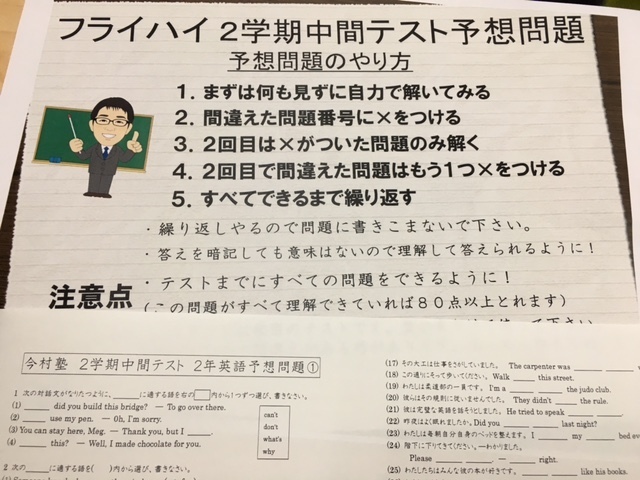 フライハイ 2学期中間テスト予想問題
予想問題のやり方
1. まずは何も見ずに自力で解いてみる
2. 間違えた問題番号に×をつける
3. 2回目は×がついた問題のみ解く
4. 2回目で間違えた問題はもう1つ×をつける
5. すべてできるまで繰り返す
・繰り返しやるので問題に書きこまないで下さい。
・答えを暗記しても意味はないので理解して答えられるように！
注意点
・テストまでにすべての問題をできるように！
(この問題がすべて理解できていれば80点以上とれます)
今村塾 2学期中間テスト 2年英語予想問題①
1 次の対話文がなりたつように、____に適する語を右の□内から1つずつ選び、書きなさい。
(1) ____ did you build this bridge? — To go over there.
(2) ____ use my pen. — Oh, I'm sorry.
(3) You can stay here, Meg. — Thank you, but I ____.
(4) ____ this? — Well, I made chocolate for you.
can't
don't
what's
why
2 次の____に適する語を( )内から選び、書きなさい。
(17) その大工は仕事をさがしていました。 The carpenter was ____
(18) この通りにそって歩いてください。 Walk ____ this street.
(19) わたしは柔道部の一員です。 I'm a ____ ____ the judo club.
(20) 彼らはその規則に従いませんでした。 They didn't ____ the rule.
(21) 彼は完璧な英語を話そうとしました。 He tried to speak ____
(22) 昨夜はよく眠れましたか。 Did you ____ ____ last night?
(23) わたしは毎朝自分自身のベッドを整えます。 I ____ my ____ bed eve
(24) 階下に下りてきてください。—わかりました。
Please ____ ____. — ____ right.
(25) わたしたちはみんな彼の本が好きです。 ____ ____ ____ like his books.